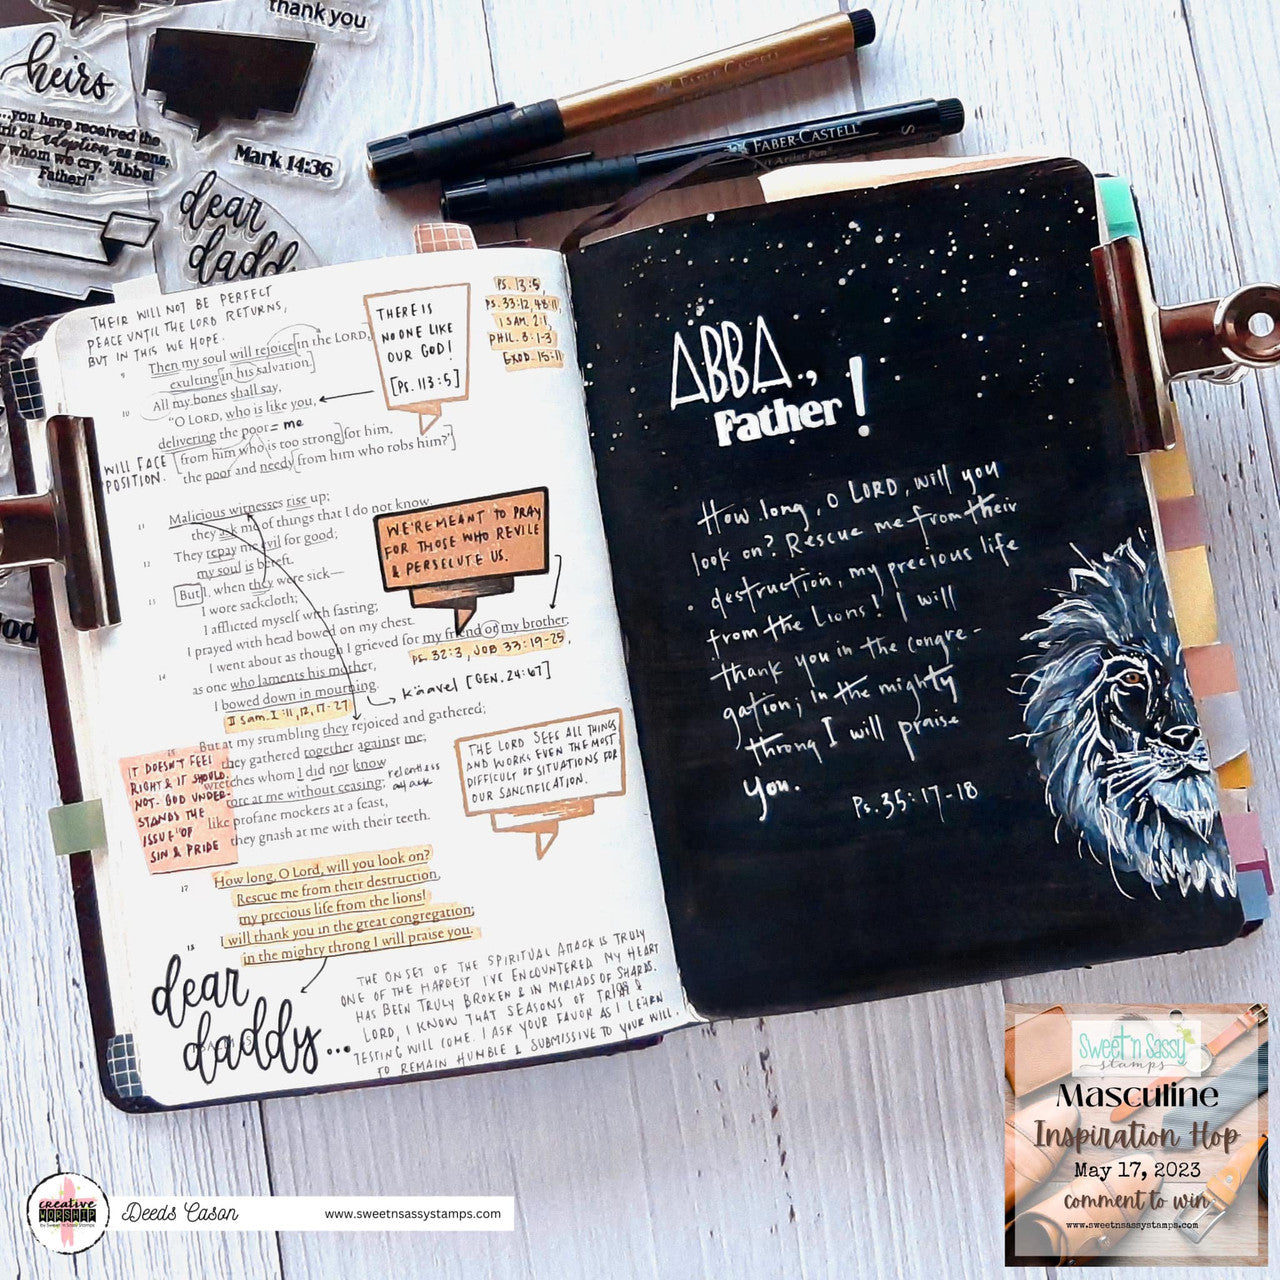 thank you
heirs
...you have received the
of adoption as sons,
whom we cry, "Abba!
Father!"
Mark 14:36
dear
daddy
FABER-CASTELL
FABER-CASTELL
Artist Pen
S
THEIR WILL NOT BE PERFECT
PEACE UNTIL THE LORD RETURNS,
BUT IN THIS WE HOPE.
9 Then my soul will rejoice [in the LORD,
exulting [in his salvation.]
10 All my bones shall say,
"O LORD, who is like you,
delivering the poor = me
[from him who is too strong] for him,
the poor and needy [from him who robs him?"]
WILL FACE
POSITION.
THERE IS
NO ONE LIKE
OUR GOD!
[Ps. 113:5]
PS. 13:5,
PS. 33:12, 48:11,
1 SAM. 2:1,
PHIL. 3:1-3
EXOD. 15:11
11 Malicious witnesses rise up;
they ask me of things that I do not know.
12 They repay me evil for good;
my soul is bereft.
13 But I, when they were sick—
I wore sackcloth;
I afflicted myself with fasting;
I prayed with head bowed on my chest.
14 I went about as though I grieved for my friend or my brother;
as one who laments his mother,
I bowed down in mourning.
WE'RE MEANT TO PRAY
FOR THOSE WHO REVILE
& PERSECUTE US.
PS. 32:3, JOB 33:19-25,
II Sam. 1:11, 12, 17-27
[GEN. 24:67]
15 But at my stumbling they rejoiced and gathered;
they gathered together against me;
wretches whom I did not know
tore at me without ceasing;
relentless
attack
like profane mockers at a feast,
they gnash at me with their teeth.
IT DOESN'T FEEL
RIGHT & IT SHOULD
NOT. GOD UNDER-
STANDS THE
ISSUE OF
SIN & PRIDE
THE LORD SEES ALL THINGS
AND WORKS EVEN THE MOST
DIFFICULT OF SITUATIONS FOR
OUR SANCTIFICATION.
17 How long, O Lord, will you look on?
Rescue me from their destruction,
my precious life from the lions!
18 I will thank you in the great congregation;
in the mighty throng I will praise you.
dear
daddy...
THE ONSET OF THE SPIRITUAL ATTACK IS TRULY
ONE OF THE HARDEST I'VE ENCOUNTERED. MY HEART
HAS BEEN TRULY BROKEN & IN MIRIADS OF SHARDS.
LORD, I KNOW THAT SEASONS OF TRIAL &
TESTING WILL COME. I ASK YOUR FAVOR AS I LEARN
TO REMAIN HUMBLE & SUBMISSIVE TO YOUR WILL.
ABBA,
Father!
How long, O LORD, will you
look on? Rescue me from their
destruction, my precious life
from the lions! I will
thank you in the congre-
gation; in the mighty
throng I will praise
you.
Ps. 35:17-18
creative
WORSHIP
by Sweet 'n Sassy Stamps
Deeds Cason
www.sweetnsassystamps.com
Sweet 'n Sassy
stamps
Masculine
Inspiration Hop
May 17, 2023
comment to win
www.sweetnsassystamps.com